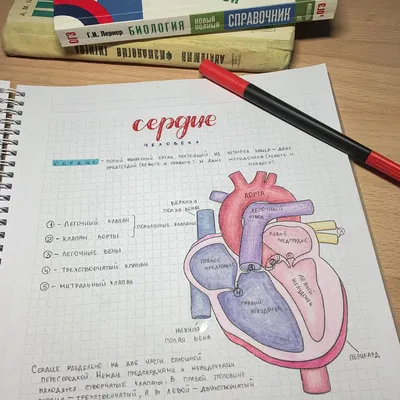 Г.И. Лернер БИОЛОГИЯ
НОВЫЙ ПОЛНЫЙ
СПРАВОЧНИК
ОГЭ
АНАТОМИЯ ФИЗИОЛОГИЯ
ГИГИЕНА
сердце
человека
СЕРДЦЕ - полый мышечный орган, состоящий из четырех камер - двух
предсердий (левого и правого) и двух желудочков (левого и
правого)
верхняя
полая вена
1 - легочный клапан
2 - клапан аорты
полулунные клапаны
3 - легочные вены
4 - трехстворчатый клапан
5 - митральный клапан
АОРТА
легочный
ствол
левое
предсердие
правое
предсердие
левый
желудочек
правый
желудочек
нижняя
полая вена
перикард
Сердце разделено на две части сплошной
перегородкой. Между предсердиями и желудочками
находятся створчатые клапаны - в правой половине
трехстворчатый, а в левой - двухстворчатый